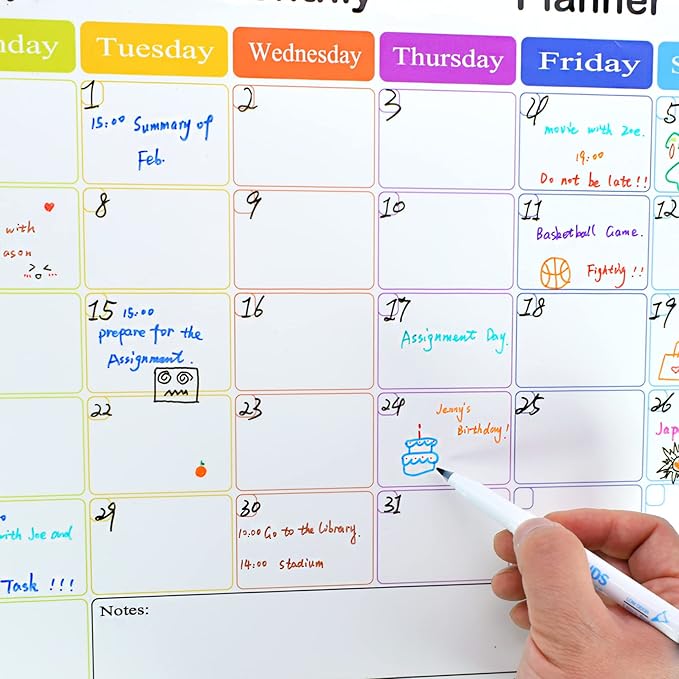 Planner
nday Tuesday Wednesday Thursday Friday S
1
15:00 Summary of
Feb.
2
3
4
movie with Zoe.
19:00
Do not be late!!
5
with
ason
8
9
10
11
Basketball Game.
Fighting!!
12
15 15:00
prepare for the
Assignment.
16
17
Assignment Day.
18
19
22
23
24
Jenny's
Birthday!
25
26
Jap
with Joe and
Task !!!
29
30
10:00 Go to the library.
14:00 stadium
31
Notes: